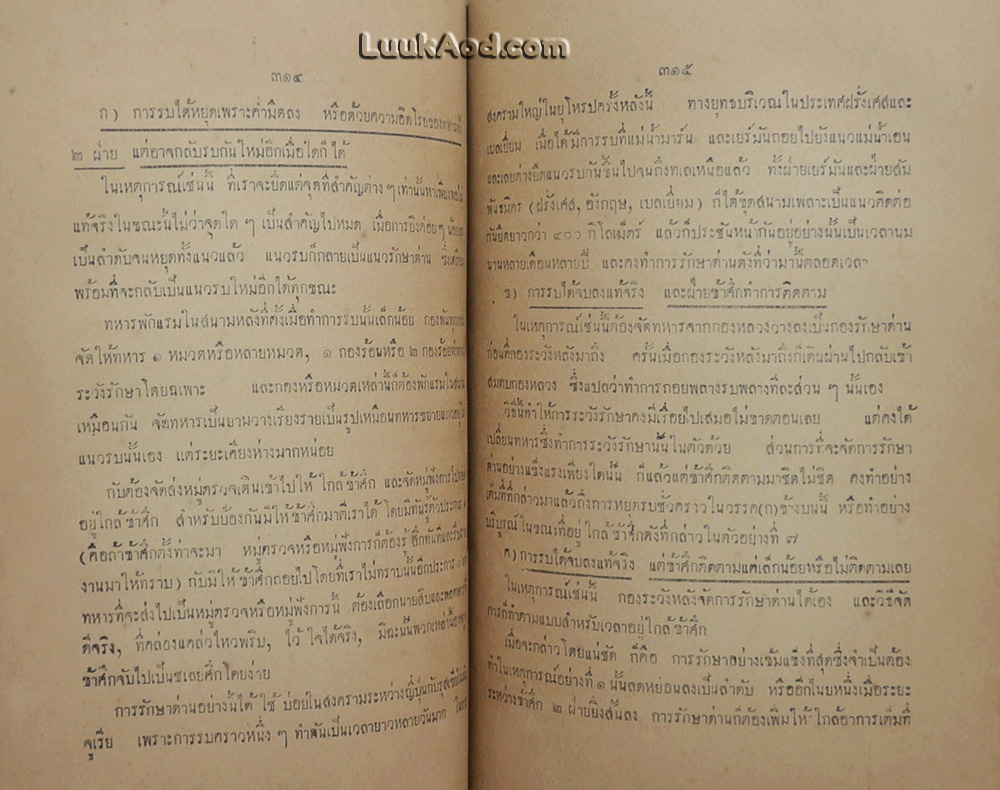 LuukAod.com
๓๑๔
ก) การรบได้หยุดเพราะค่ำมืดลง หรือด้วยความอิดโรยของทหารทั้ง
๒ ฝ่าย แต่อาจกลับรบกันใหม่อีกเมื่อใดก็ได้
ในเหตุการณ์เช่นนี้ ที่เราจะยึดแต่จุดที่สำคัญต่าง ๆ เท่านั้นหาเพียงพอไม่
แท้จริงในขณะนี้ไม่ว่าจุดใด ๆ เป็นสำคัญไปหมด เมื่อการยิงค่อยๆ น้อยลง
เป็นลำดับจนหยุดทั้งแนวแล้ว แนวรบก็กลายเป็นแนวรักษาด่าน ซึ่งเตรียม
พร้อมที่จะกลับเป็นแนวรบใหม่อีกได้ทุกขณะ
ทหารพักแรมในสนามหลังที่ตั้งเมื่อทำการรบนั้นเล็กน้อย กองพันทุกกอง
จัดให้ทหาร ๑ หมวดหรือหลายหมวด, ๑ กองร้อยหรือ ๒ กองร้อยทำการ
ระวังรักษาโดยฉเพาะ และกองหรือหมวดเหล่านี้ก็ต้องพักแรมในสนาม
เหมือนกัน จัดทหารเป็นยามวางเรียงรายเป็นรูปเหมือนทหารขยายแถวอยู่ใน
แนวรบนั้นเอง แต่ระยะเคียงห่างมากหน่อย
กับต้องจัดส่งหมู่ตรวจเดินเข้าไปให้ใกล้ข้าศึก และจัดหมู่ฟังการไป
อยู่ใกล้ข้าศึก สำหรับป้องกันมิให้ข้าศึกมาตีเราได้ โดยมิทันรู้ตัวประการ ๑
(คือถ้าข้าศึกตั้งท่าจะมา หมู่ตรวจหรือหมู่ฟังการก็ต้องรู้สึกทันทีและรีบราย
งานมาให้ทราบ) กับมิให้ข้าศึกถอยไปโดยที่เราไม่ทราบนั้นอีกประการ ๑
ทหารที่จะส่งไปเป็นหมู่ตรวจหรือหมู่ฟังการนี้ ต้องเลือกนายสิบและพลทหารที่
ดีจริง, ที่คล่องแคล่วไหวพริบ, ไว้ใจได้จริง, มิฉะนั้นพวกเหล่านี้อาจถูก
ข้าศึกจับไปเป็นชเลยศึกโดยง่าย
การรักษาด่านอย่างนี้ได้ใช้บ่อยในสงครามระหว่างญี่ปุ่นกับรุสเซีย
จูเรีย เพราะการรบคราวหนึ่ง ๆ ทำกันเป็นเวลายาวหลายวันมาก
๓๑๕
สงครามใหญ่ในยุโหรปครั้งหลังนี้ ทางยุทธบริเวณในประเทศฝรั่งเศสและ
เบลเยี่ยม เมื่อได้มีการรบที่แม่น้ำมาร์น และเยร์มันถอยไปยังแนวแม่น้ำเอน
และเลยต่างยึดแนวรบกันขึ้นไปจนถึงทเลเหนือแล้ว ทั้งฝ่ายเยร์มันและฝ่ายสัม
พันธมิตร (ฝรั่งเศส, อังกฤษ, เบลเยี่ยม) ก็ได้ขุดสนามเพลาะเป็นแนวติดต่อ
กันยืดยาวกว่า ๔๐๐ กิโลเม็ตร์ แล้วก็ประชันหน้ากันอยู่อย่างนั้นเป็นเวลานม
นานหลายเดือนหลายปี และคงทำการรักษาด่านดังที่ว่ามานี้ตลอดเวลา
ข) การรบได้จบลงแท้จริง และฝ่ายข้าศึกทำการติดตาม
ในเหตุการณ์เช่นนี้ต้องจัดทหารจากกองหลวงวางลงเป็นกองรักษาด่าน
ก่อนที่กองระวังหลังมาถึง ครั้นเมื่อกองระวังหลังมาถึงก็เดินผ่านไปกลับเข้า
สมทบกองหลวง ซึ่งแปลว่าทำการถอยพลางรบพลางทีละส่วน ๆ นั้นเอง
วิธีนี้ทำให้การระวังรักษาคงมีเรื่อยไปเสมอไม่ขาดตอนเลย แต่คงได้
เปลี่ยนทหารซึ่งทำการระวังรักษานั้นในตัวด้วย ส่วนการที่จะจัดการรักษา
ด่านอย่างแข็งแรงเพียงใดนั้น ก็แล้วแต่ข้าศึกติดตามมาชิดไม่ชิด คงทำอย่าง
เต็มที่ที่กล่าวมาแล้วถึงการหยุดรบชั่วคราวในวรรค(ก)ข้างบนนี้ หรือทำอย่าง
บริบูรณ์ในขณะที่อยู่ใกล้ข้าศึกดังที่กล่าวในตัวอย่างที่ ๗
ค) การรบได้จบลงแท้จริง แต่ข้าศึกติดตามแต่เล็กน้อยหรือไม่ติดตามเลย
ในเหตุการณ์เช่นนี้ กองระวังหลังจัดการรักษาด่านได้เอง และวิธีจัด
การก็ทำตามแบบสำหรับเวลาอยู่ใกล้ข้าศึก
เมื่อจะกล่าวโดยแน่ชัด ก็คือ การรักษาอย่างเข้มแข็งที่สุดซึ่งจำเป็นต้อง
ทำในเหตุการณ์อย่างที่ ๑ นั้นลดหย่อนลงเป็นลำดับ หรืออีกในยหนึ่งเมื่อระยะ
ระหว่างข้าศึก ๒ ฝ่ายยิ่งสั้นลง การรักษาด่านก็ต้องเพิ่มให้ใกล้อาการเต็มที่